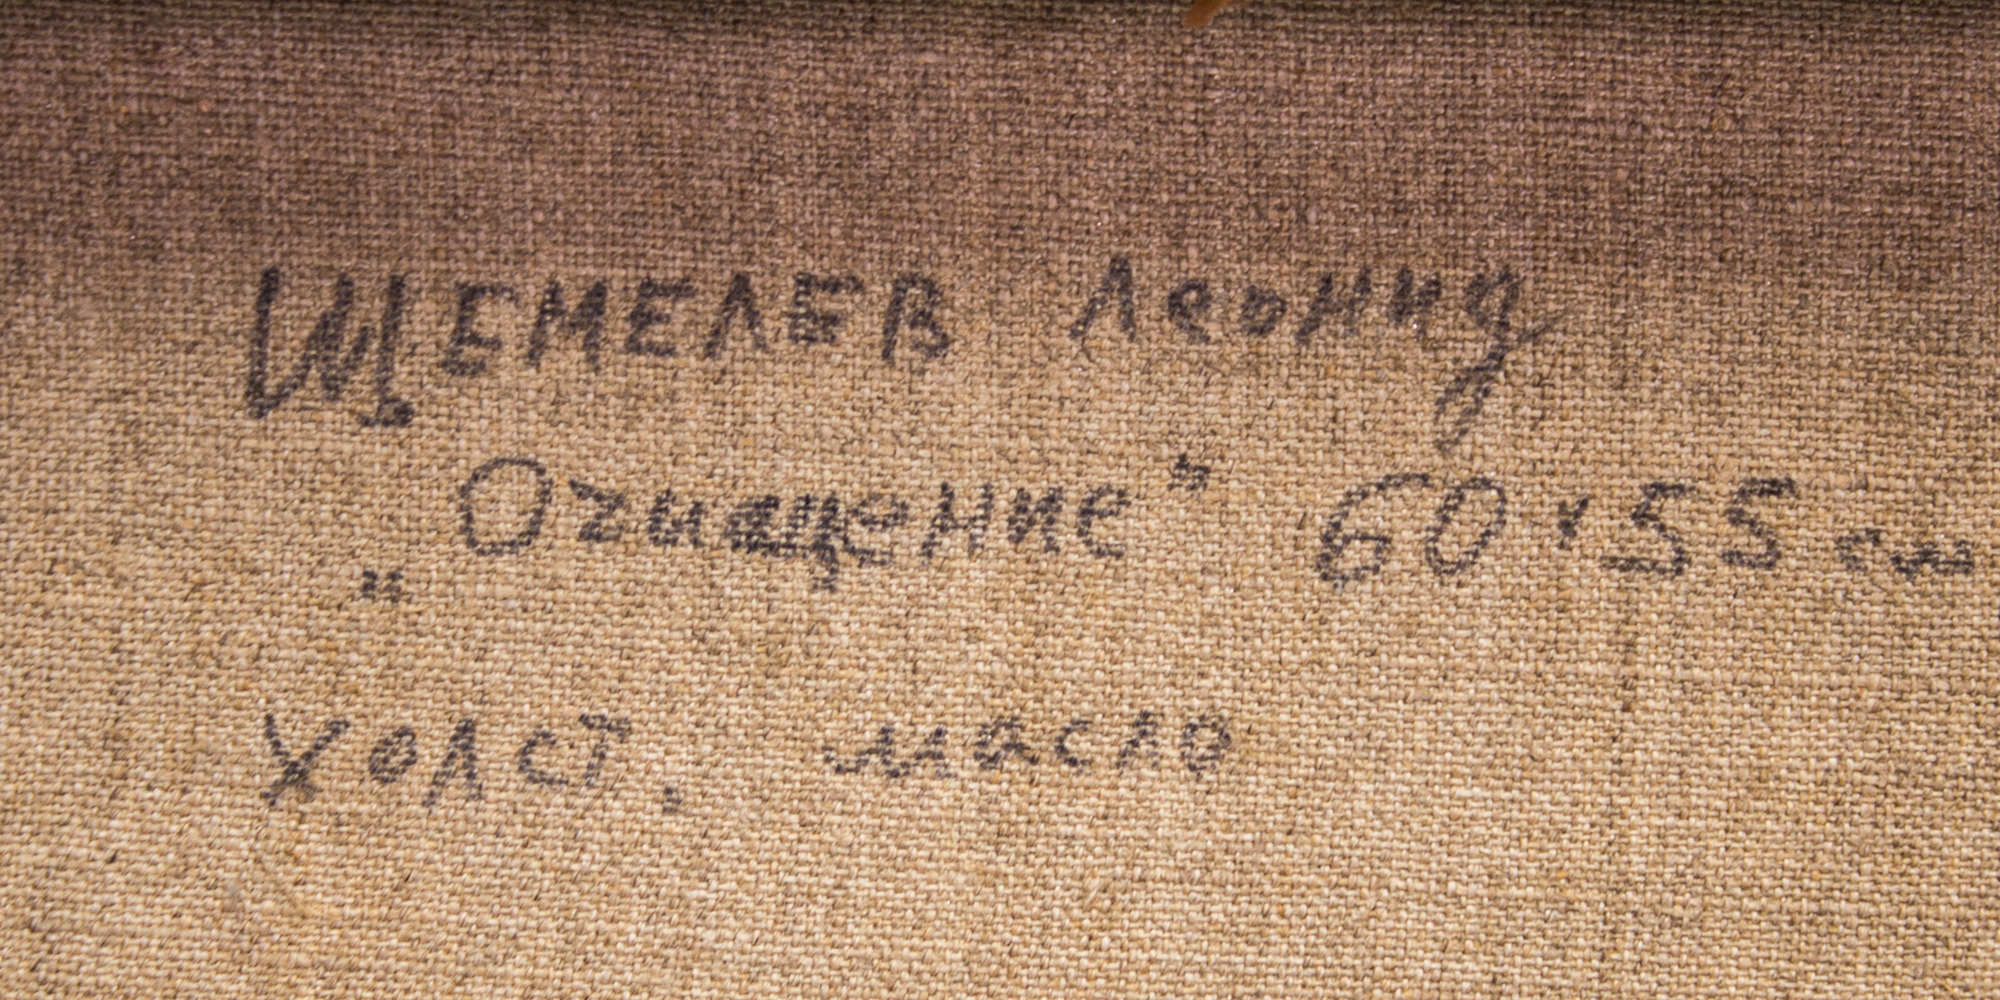 ЩЕМЕЛЕВ Леонид
„Очищение" 60×55 см
холст, масло